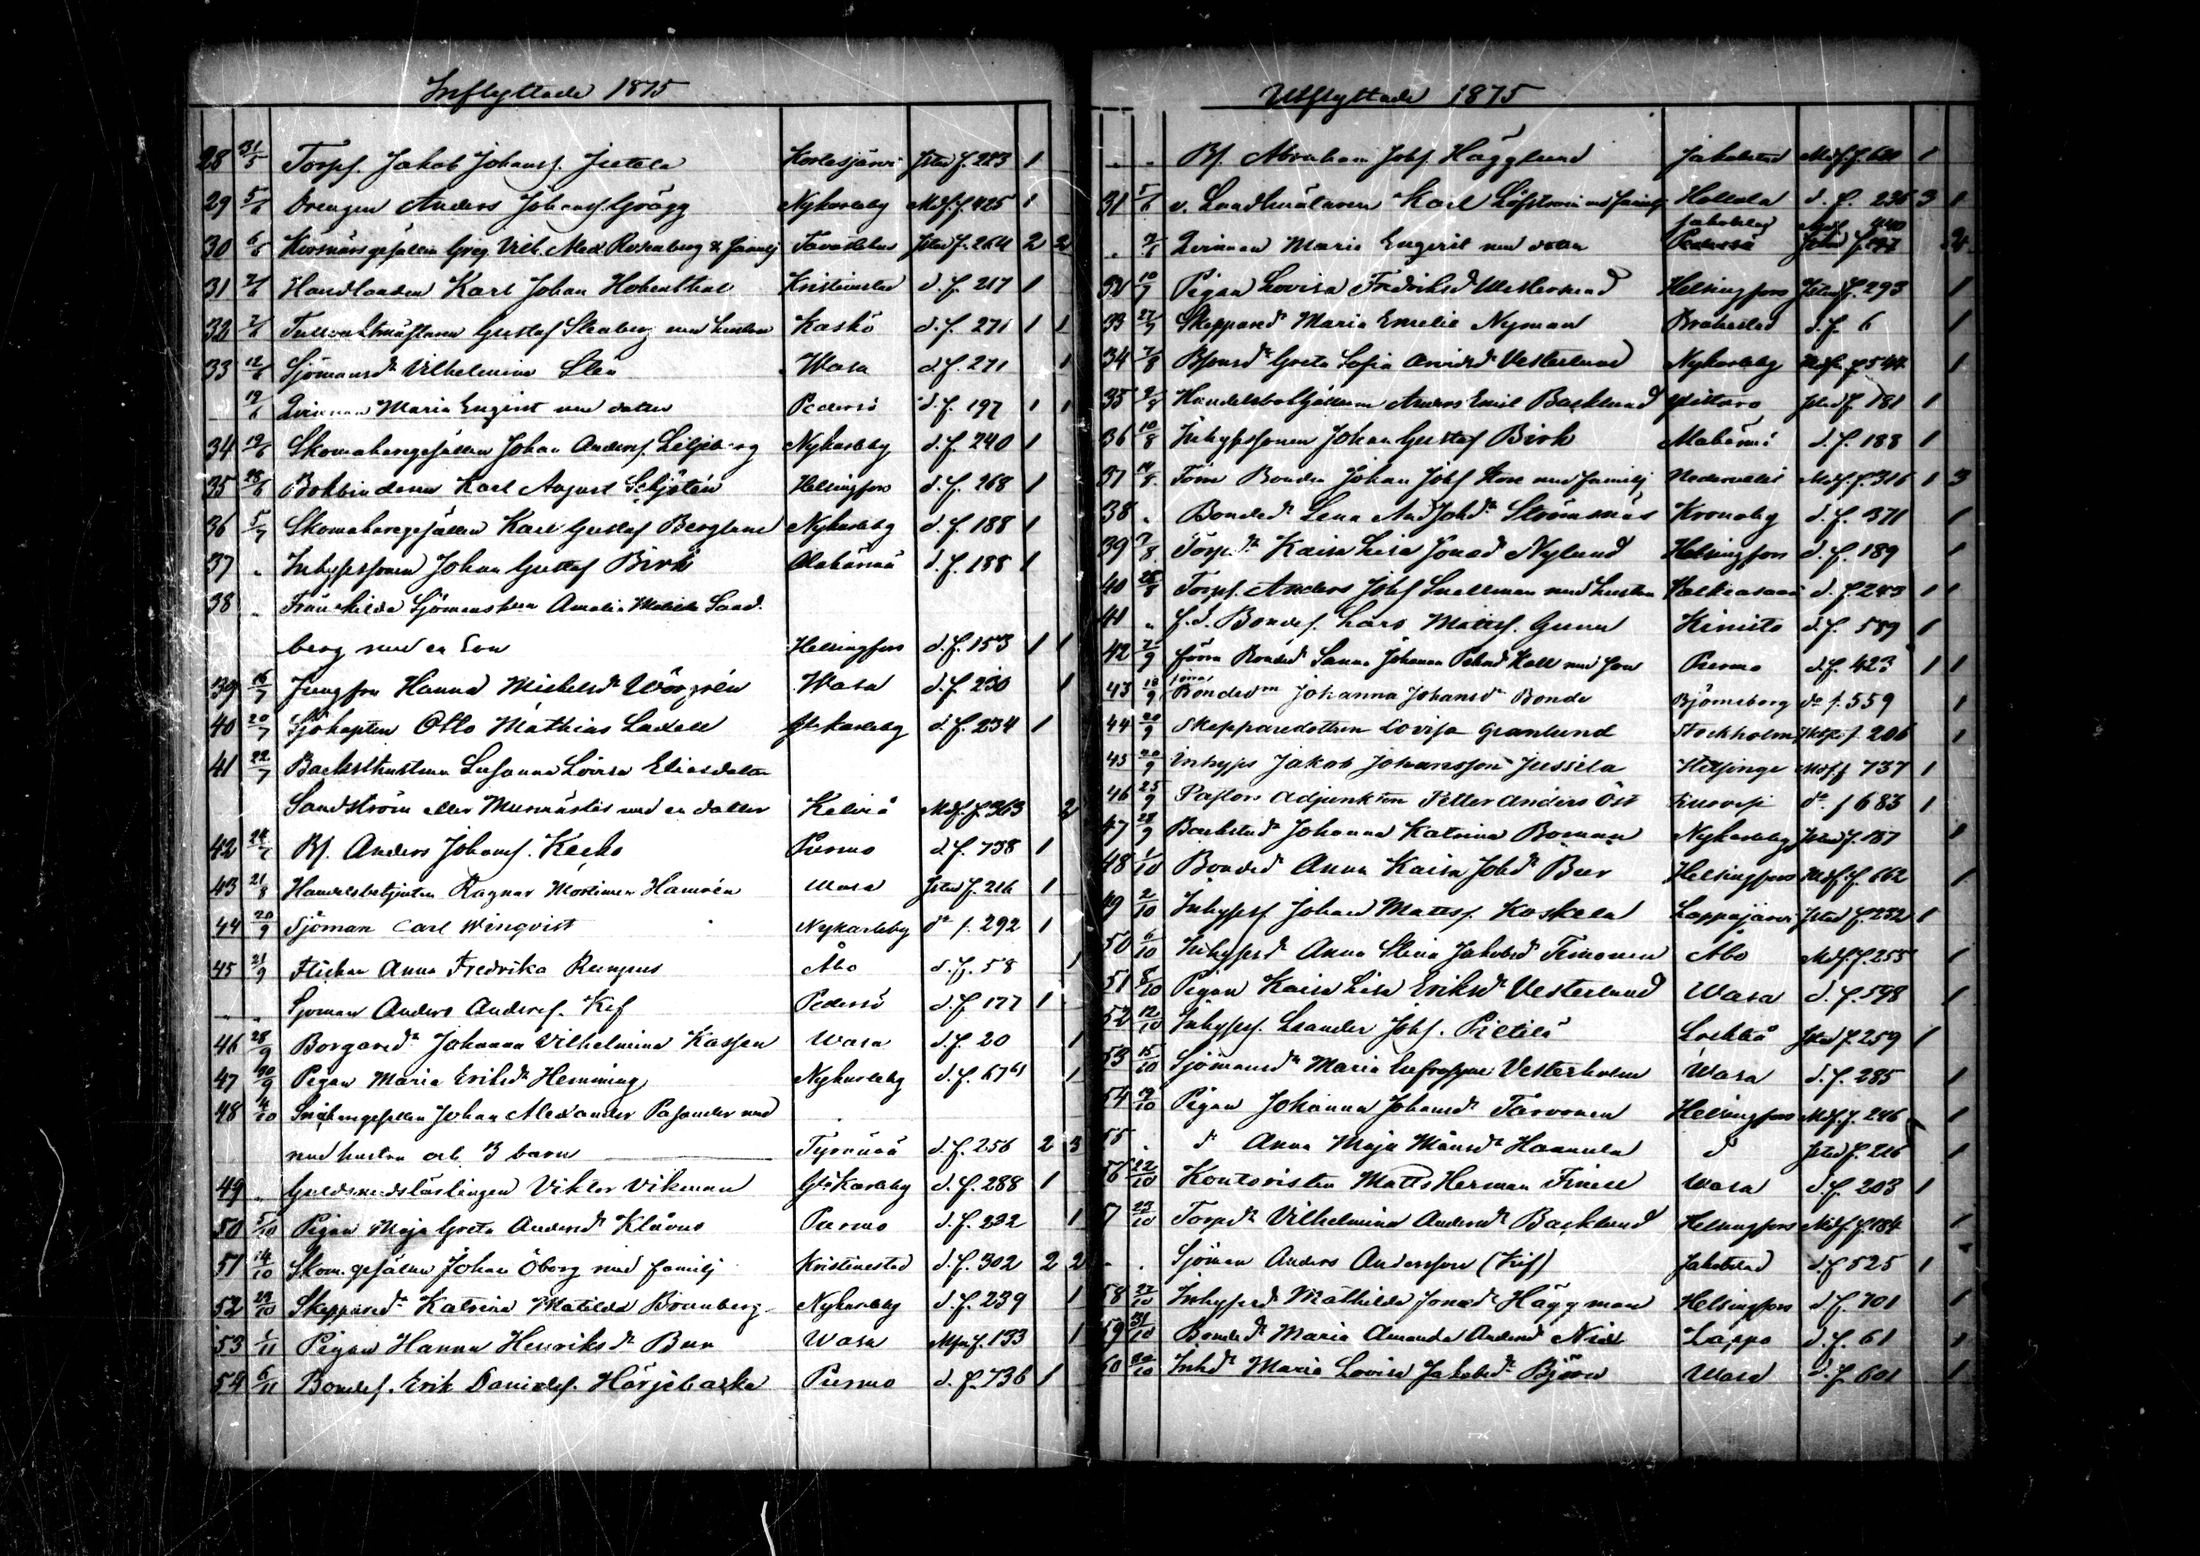 Inflyttade 1875
28 31/5 Torpf. Jakob Johansf. Jutela Kortesjärvi Jstad f. 223 1
29 5/6 Drengen Anders Johansf. Grägg Nykarleby Mdf. f. 425 1
30 6/6 Korsnärsgesällen Greg. Vilh. Alex. Rosenberg & familj Tavastehus Jstad f. 264 2 2
31 7/6 Handlanden Karl Johan Hohenthal Kristinestad d. f. 217 1
32 7/6 Tullvaktmästaren Gustaf Stenberg med hustru Kaskö d. f. 271 1 1
33 12/6 Sjömansd. Vilhelmina Sten Wasa d. f. 271 1
19/6 Qvinnan Maria Engerit med dotter Pedersö d. f. 197 1 1
34 19/6 Skomakaregesällen Johan Andersf. Liljeberg Nykarleby d. f. 240 1
35 28/6 Bokbindaren Karl August Helsingfors d. f. 268 1
36 5/7 Skomakaregesällen Karl Gustaf Berglund Nykarleby d. f. 188 1
37 „ Inhysessonen Johan Gustaf Birk Alahärmä d. f. 188 1
38 „ Frånskilda Sjömanshustrun Amalia Matilda Sand-
berg med en Son Helsingfors d. f. 153 1 1
39 16/7 Jungfru Hanna Michelsd. Wörgrén Wasa d. f. 230 1
40 20/7 Sjökapten Otto Mathias Ladell Glkarleby d. f. 234 1
41 22/7 Backstuhustrun Susanna Lovisa Eliasdotter
Sandström eller med en dotter Kelviå Mdf. f. 363 2
42 24/7 Bf. Anders Johansf. Kecko Purmo d. f. 738 1
43 21/8 Handelsbetjenten Ragnar Mortimer Hamrén Wasa Jstad f. 216 1
44 20/9 Sjöman Carl Winqvist Nykarleby do f. 292 1
45 21/9 Flickan Anna Fredrika Rungius Åbo d. f. 58 1
„ „ Sjöman Anders Andersf. Kif Pedersö d. f. 177 1
46 28/9 Borgared. Johanna Vilhelmina Kassen Wasa d. f. 20 1
47 30/9 Pigan Maria Eriksd. Hemming Nykarleby d. f. 1
48 4/10 Snickaregesällen Johan Alexander Pasander med
med hustru och 3 barn Tyrnävä d. f. 256 2 3
49 „ Guldsmedslärlingen Viktor Vikman Glkarleby d. f. 288 1
50 5/10 Pigan Maja Greta Andersd. Klåvus Purmo d. f. 232 1
51 14/10 Skom. gesällen Johan Öberg med familj Kristinestad d. f. 302 2 2
52 22/10 Skeppared. Katrina Matilda Brunberg Nykarleby d. f. 239 1
53 1/11 Pigan Hanna Henriksd. Bur Wasa f. 133 1
54 6/11 Bondef. Erik Danielsf. Härjebacka Purmo d. f. 736 1
Utflyttade 1875
„ „ Bf. Abraham Johf Hägglund Jakobstad Mdf. f. 1
31 5/6 v. Landtmätaren Karl Löfström med familj Hollola d. f. 236 3 1
Jakobstad 440
„ Qvinnan Maria Engerit med dotter Pedersö Jstad f. 197 2
32 10/7 Pigan Lovisa Fredriksd. Westerlund Helsingfors Jstad f. 293 1
33 27/7 Skeppared. Maria Emelie Nyman Brahestad d. f. 6 1
34 7/8 Greta Sofia Arvidsd. Vesterlund Nykarleby Mdf. f. 544 1
35 9/8 Handelsbokhållaren Anders Emil Backlund Jstad f. 181 1
36 10/8 Inhysessonen Johan Gustaf Birk Alahärmä d. f. 188 1
37 14/8 Förre Bonden Johan Johf med familj Nedervetil Mdf. f. 316 1 3
38 „ Bonded. Lena And Johd. Strömsnäs Kronoby d. f. 371 1
39 Torp.d. Kaisa Lisa Jonasd. Nylund Helsingfors d. f. 189 1
40 28/8 Torpf. Anders Johf Snellman med hustru Valkeasaari d. f. 243 1 1
41 „ f. d. Bondef. Lars Mattsf. Gunn Kimito d. f. 589 1
42 7/9 förra Bonded. Sanna Johanna Petersd. Kall med son Purmo d. f. 423 1 1
43 10/9 förra Bonded. Johanna Johansd. Bonde Björneborg do f. 559 1
44 20/9 Skepparedottren Lovisa Granlund Stockholm Jstad f. 206 1
45 20/9 Inhyses Jakob Johansson Jussila Helsinge Mdf f 737 1
46 25/9 Pastors Adjunkten Petter Anders Öst Kuorevesi do f 683 1
47 28/9 Backstud. Johanna Katrina Boman Nykarleby Jstad f. 187 1
48 1/10 Bonded. Anna Kaisa Johd. Bur Helsingfors Mdf. f. 662 1
49 2/10 Inhysesf. Johan Mattsf. Koskela Lappajärvi Jstad f. 252 1
50 6/10 Inhysesd. Anna Stina Jakobsd. Timonen Åbo Mdf. f. 255 1
51 8/10 Pigan Kaisa Lisa Eriksd. Vesterlund Wasa d. f. 598 1
52 12/10 Inhysesf. Leander Johf. Pietilä Lochteå Jstad f. 259 1
53 15/10 Sjömansd. Maria Eufrosyne Vesterholm Wasa d. f. 285 1
54 19/10 Pigan Johanna Johansd. Tarvonen Helsingfors Mdf. f. 246 1
55 „ d. Anna Maja Månsd. Hannula d Jstad f. 216 1
56 22/10 Kontoristen Matts Herman Finell Wasa d. f. 203 1
57 23/10 Torpd. Vilhelmina Andersd. Backlund Helsingfors Mdf. f. 184 1
„ „ Sjöman Anders Andersson (Kif) Jakobstad d. f 525 1
58 27/10 Inhysesd. Mathilda Jonasd. Häggman Helsingfors d. f. 701 1
59 31/10 Bonded. Maria Amanda Andersd. Nix Lappo d. f. 61 1
60 30/10 Inhd. Maria Lovisa Jakobsd. Björn Wasa d. f. 601 1